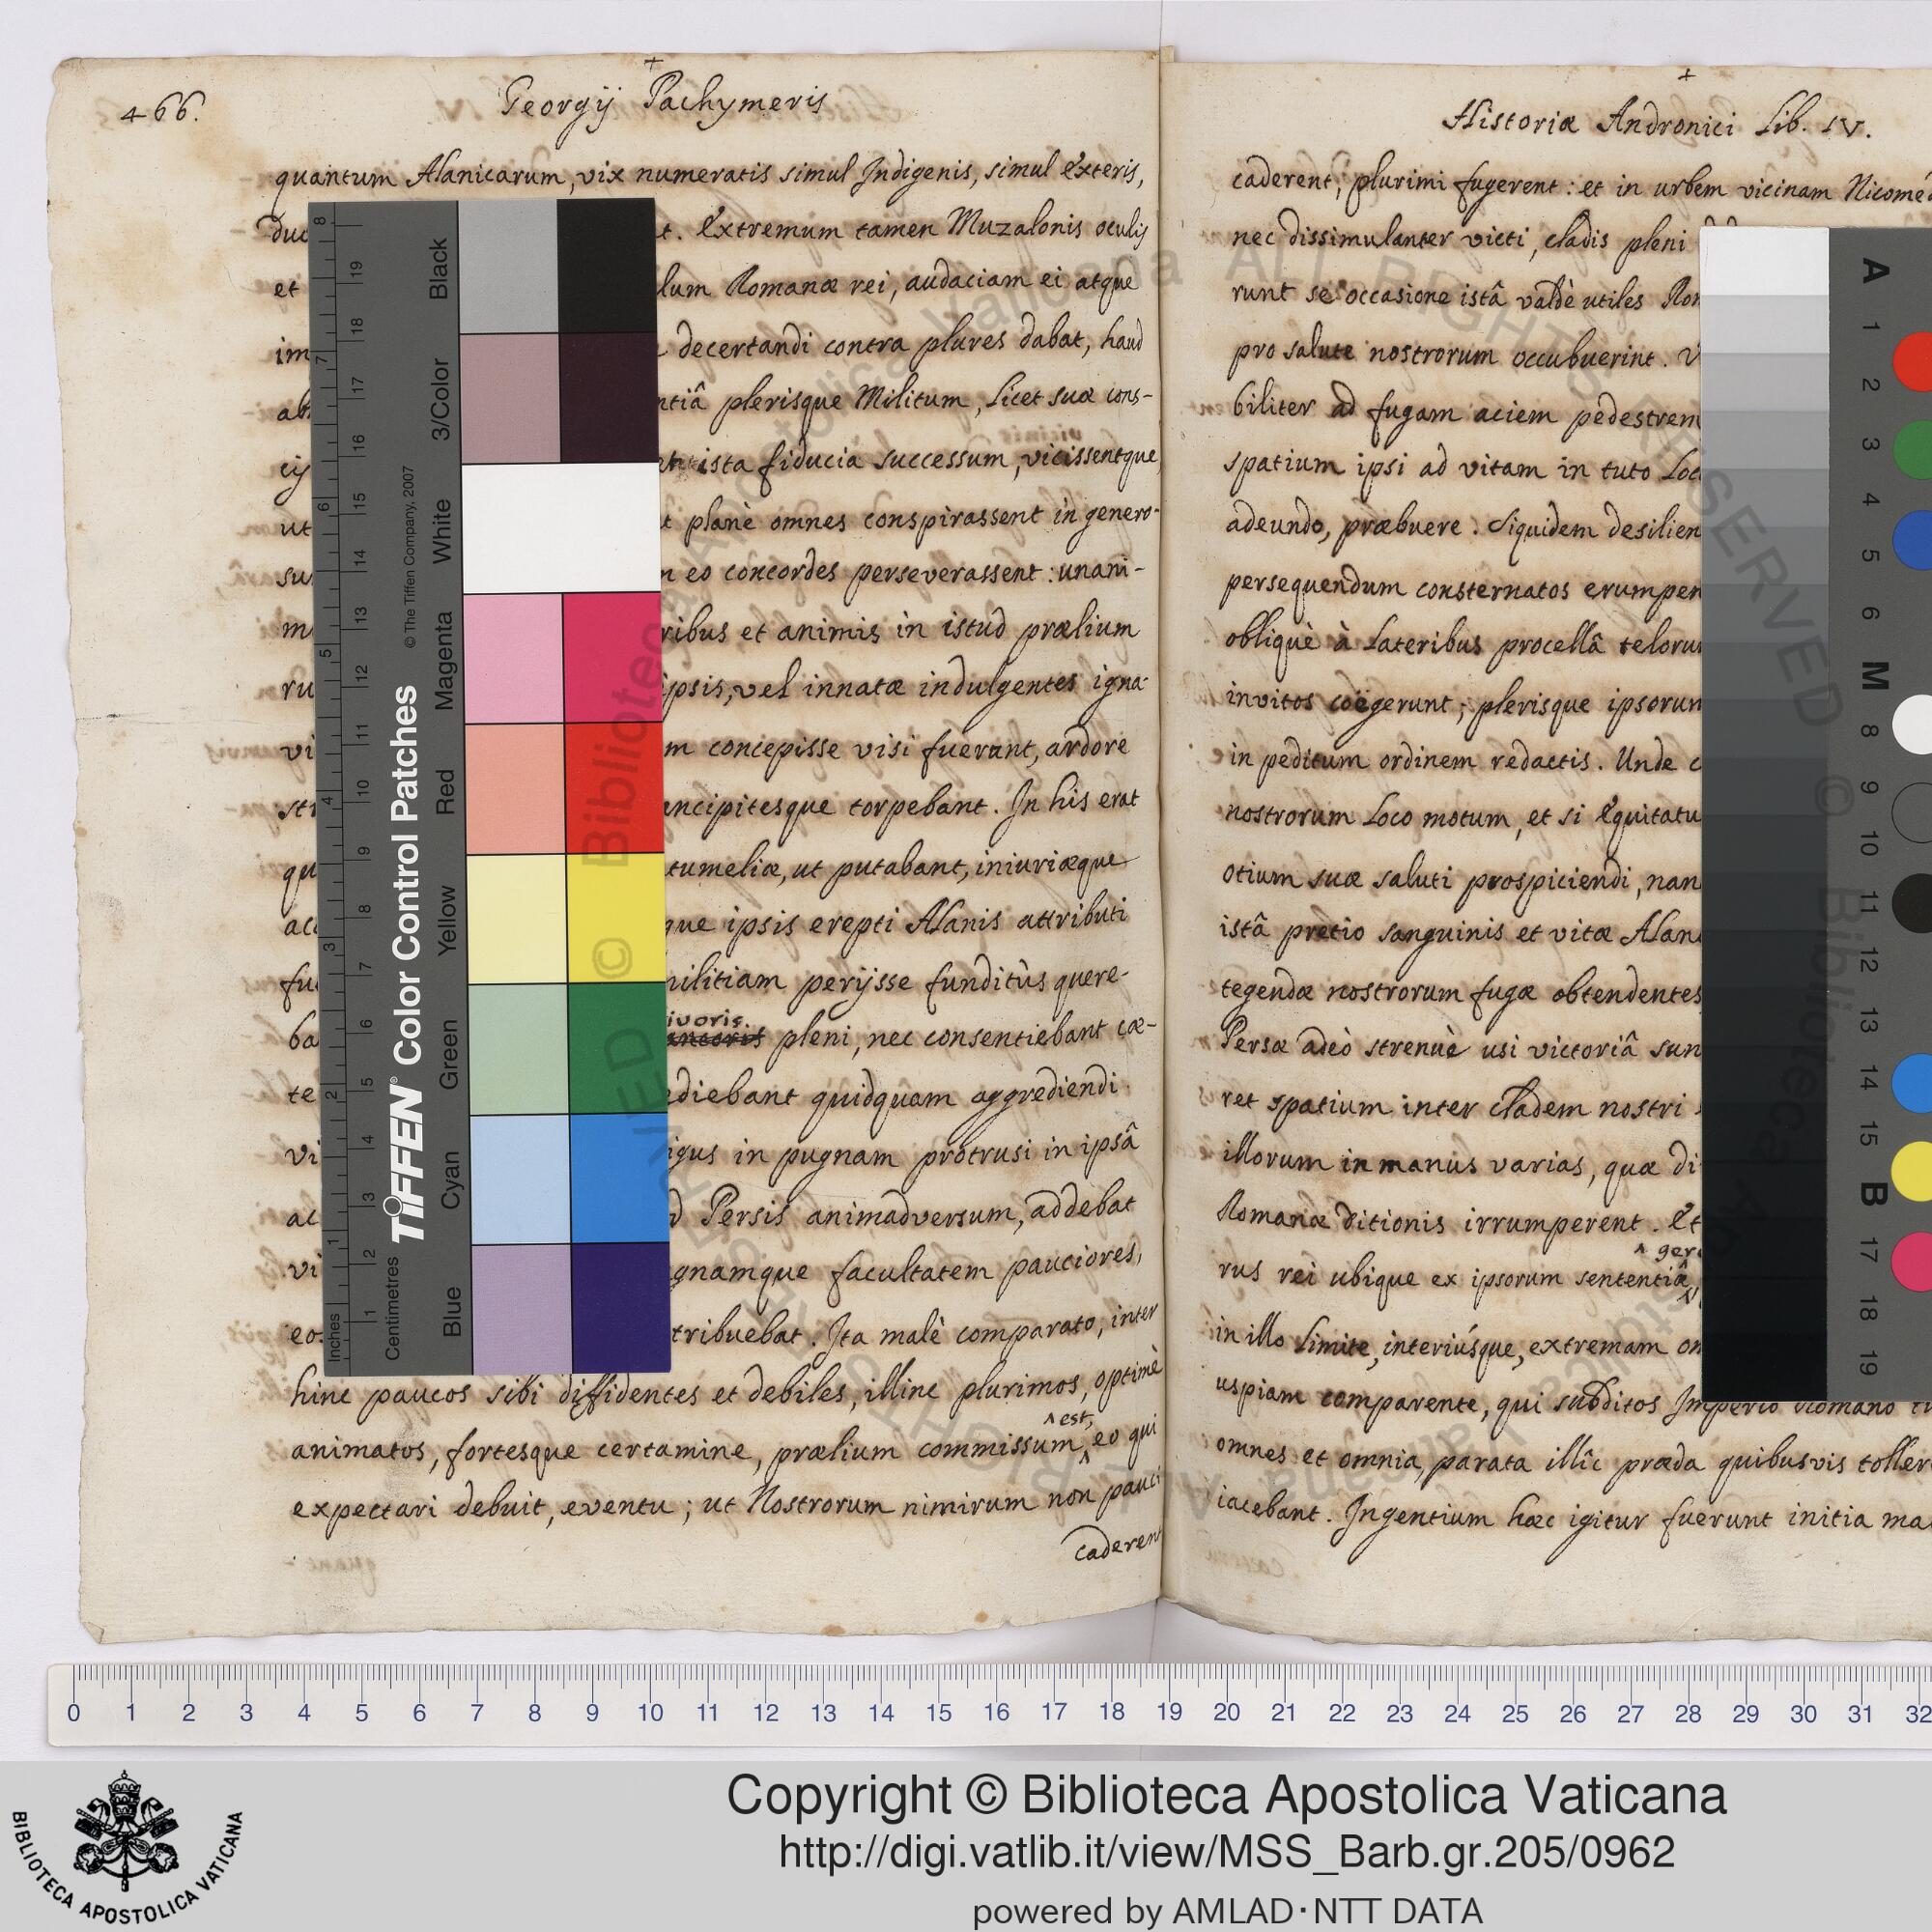 466.
Georgij Pachymeris
quantum Alanicarum, vix numeratis simul Indigenis, simul Exteris,
t. Extremum tamen Muzalonis oculis
et lum Romanæ rei, audaciam ei atque
decertandi contra plures dabat, haud
ntiâ plerisque Militum, licet suæ cons-
ista fiducia successum, vicissentque
ut planè omnes conspirassent in genero-
eo concordes perseverassent: unani-
ribus et animis in istud prælium
ipsis, vel innatæ indulgentes igna-
m concepisse visi fuerant, ardore
ncipitesque torpebant. In his erat
tumeliæ, ut putabant, iniuriæque
que ipsis erepti Alanis attributi
militiam perijsse funditùs quere-
ivoris
ancoris pleni, nec consentiebant cæ-
ediebant quidquam aggrediendi
igus in pugnam protrusi in ipsâ
Persis animadversum, addebat
gnamque facultatem pauciores,
tribuebat. Ita malè comparato, inter
hinc paucos sibi diffidentes et debiles, illinc plurimos, optimè
animatos, fortesque certamine, prælium commissum est, eo qui
expectari debuit, eventu; ut Nostrorum nimirum non pauci
caderent
Historiæ Andronici Lib. IV.
caderent, plurimi fugerent: et in urbem vicinam Nicomed
nec dissimulanter victi, cladis pleni
runt se occasione istâ valdè utiles Rom
pro salute nostrorum occubuerint. V
biliter ad fugam aciem pedestrem
spatium ipsi ad vitam in tuto Loc
adeundo, præbuere. Siquidem desilien
persequendum consternatos erumpen
obliquè à lateribus procellâ telorum
invitos coëgerunt; plerisque ipsorum
in peditum ordinem redactis. Unde c
nostrorum Loco motum, et si Equitatu
otium suæ saluti prospiciendi, nan
istâ pretio sanguinis et vitæ Alan
tegendæ nostrorum fugæ obtendentes
Persæ adeò strenuè usi victoriâ sun
ret spatium inter cladem nostri
illorum in manus varias, quæ di
Romanæ ditionis irrumperent. Et
ger
rus rei ubique ex ipsorum sententiâ,
in illo Limite, interiúsque, extremam om
uspiam comparente, qui subditos Imperio Romano
omnes et omnia, parata illîc præda quibusvis toller
iacebant. Ingentium hæc igitur fuerunt initia ma
Inches
Centimetres
TIFFEN® Color Control Patches
© The Tiffen Company, 2007
Blue Cyan Green Yellow Red Magenta White 3/Color Black
1 2 3 4 5 6 7 8
1 2 3 4 5 6 7 8 9 10 11 12 13 14 15 16 17 18 19
A 1 2 3 4 5 6 M 8 9 10 11 12 13 14 15 B 17 18 19
© Biblioteca Apostolica Vaticana ALL RIGHTS RESERVED
0 1 2 3 4 5 6 7 8 9 10 11 12 13 14 15 16 17 18 19 20 21 22 23 24 25 26 27 28 29 30 31 32
BIBLIOTECA APOSTOLICA VATICANA
Copyright © Biblioteca Apostolica Vaticana
http://digi.vatlib.it/view/MSS_Barb.gr.205/0962
powered by AMLAD·NTT DATA